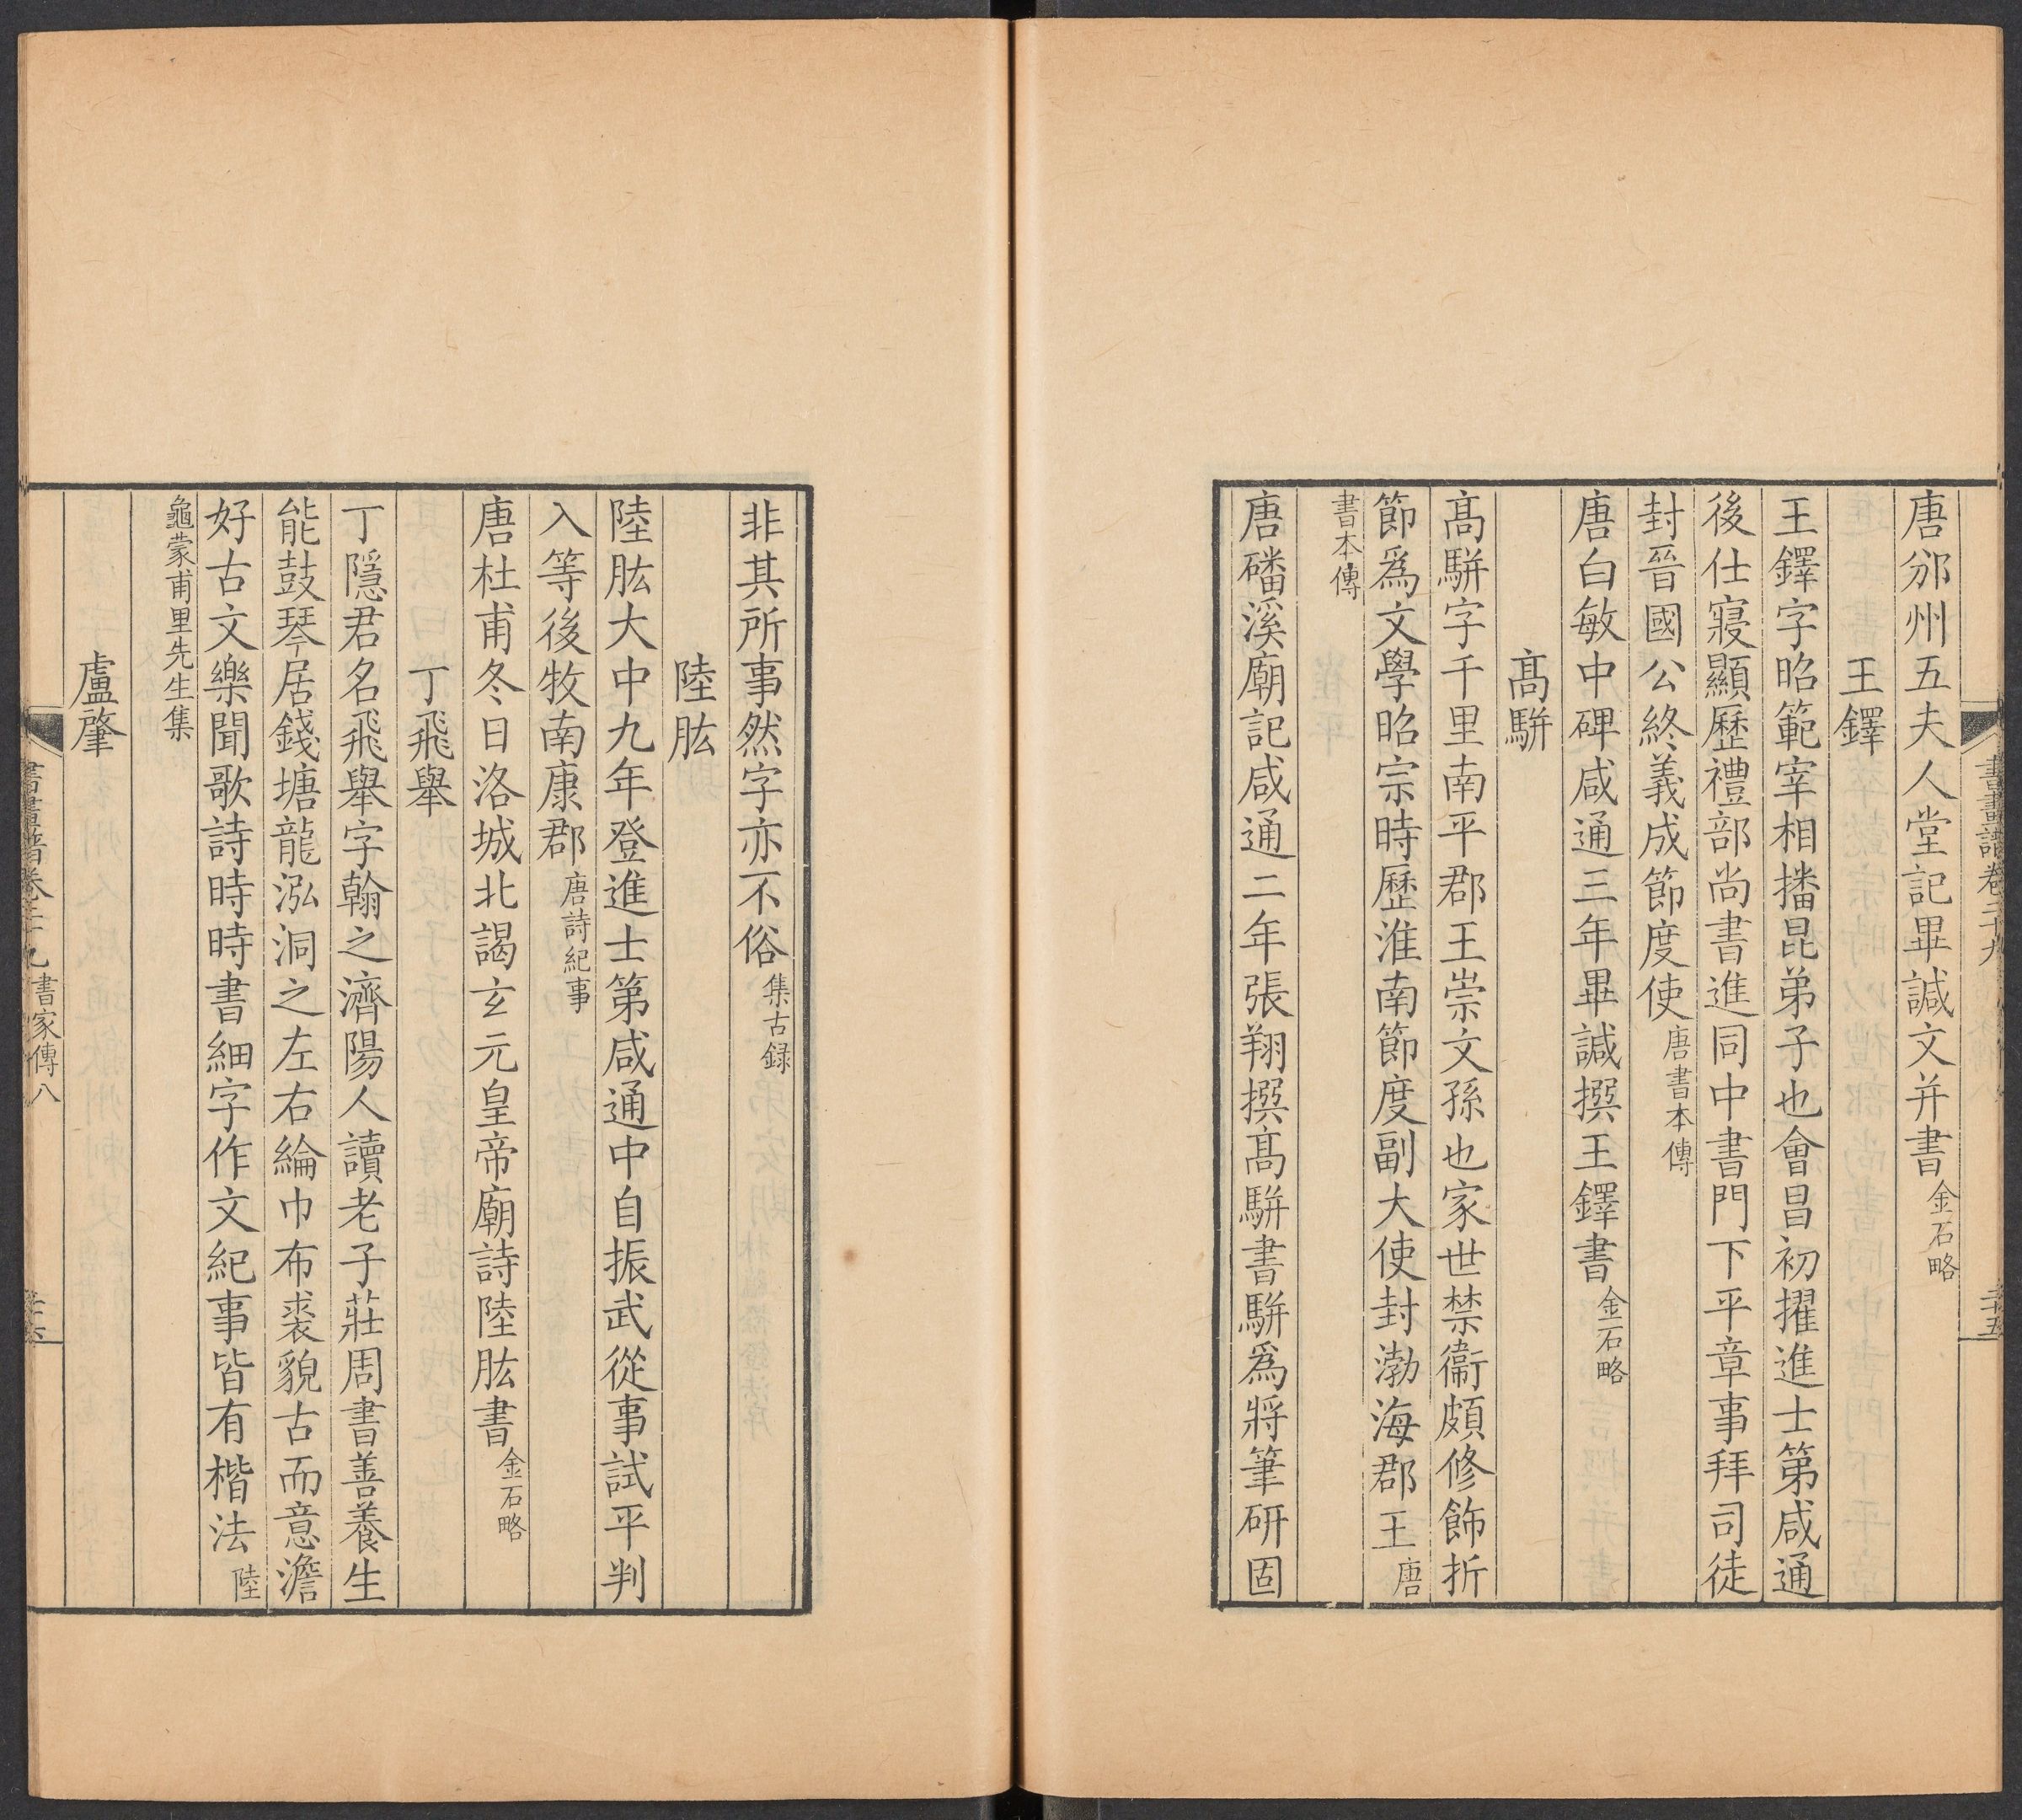 書畫譜卷二十九
二十五
唐邠州五夫人堂記畢諴文并書金石略
王鐸
王鐸字昭範宰相播昆弟子也會昌初擢進士第咸通
後仕寢顯歷禮部尚書進同中書門下平章事拜司徒
封晉國公終義成節度使唐書本傳
唐白敏中碑咸通三年畢諴撰王鐸書金石略
高駢
高駢字千里南平郡王崇文孫也家世禁衞頗修飾折
節爲文學昭宗時歷淮南節度副大使封渤海郡王唐
書本傳
唐磻溪廟記咸通二年張翔撰高駢書駢爲將筆研固
非其所事然字亦不俗集古録
陸肱
陸肱大中九年登進士第咸通中自振武從事試平判
入等後牧南康郡唐詩紀事
唐杜甫冬日洛城北謁玄元皇帝廟詩陸肱書金石略
丁飛舉
丁隱君名飛舉字翰之濟陽人讀老子莊周書善養生
能鼓琴居錢塘龍泓洞之左右綸巾布裘貌古而意澹
好古文樂聞歌詩時時書細字作文紀事皆有楷法陸
龜蒙甫里先生集
盧肇
書畫譜卷二十九 書家傳八
二十六